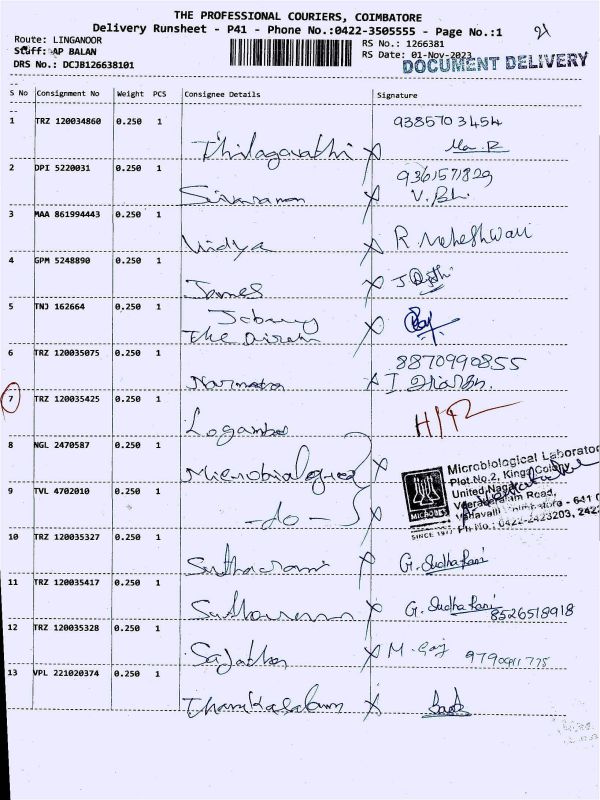 THE PROFESSIONAL COURIERS, COIMBATORE
Delivery Runsheet - P41 - Phone No.:0422-3505555 - Page No.:1
21
Route: LINGANOOR
RS No.: 1266381
Staff: AP BALAN
RS Date: 01-Nov-2023
DRS No.: DCJB126638101
DOCUMENT DELIVERY
S No Consignment No Weight PCS Consignee Details Signature
1 TRZ 120034860 0.250 1 Thilagavathi X 9385703454
2 DPI 5220031 0.250 1 Sivaraman X 9361571829
3 MAA 861994443 0.250 1 Vidya X R. Maheshwari
4 GPM 5248890 0.250 1 James X J
5 TNJ 162664 0.250 1 The X
6 TRZ 120035075 0.250 1 Narmatha X 8870990855
7 TRZ 120035425 0.250 1
8 NGL 2470587 0.250 1 Microbiological X
Microbiological Laborator
Plot No.2, Kings Colony,
United Nagar
Veerakeralam Road,
- 641 0
MICROBES
SINCE 1977 Ph No : 0422-2423203, 242
9 TVL 4702010 0.250 1 -do- X
10 TRZ 120035327 0.250 1 X G. Sudha Rani
11 TRZ 120035417 0.250 1 X G. Sudha Rani 8526518918
12 TRZ 120035328 0.250 1 X M.
13 VPL 221020374 0.250 1 X